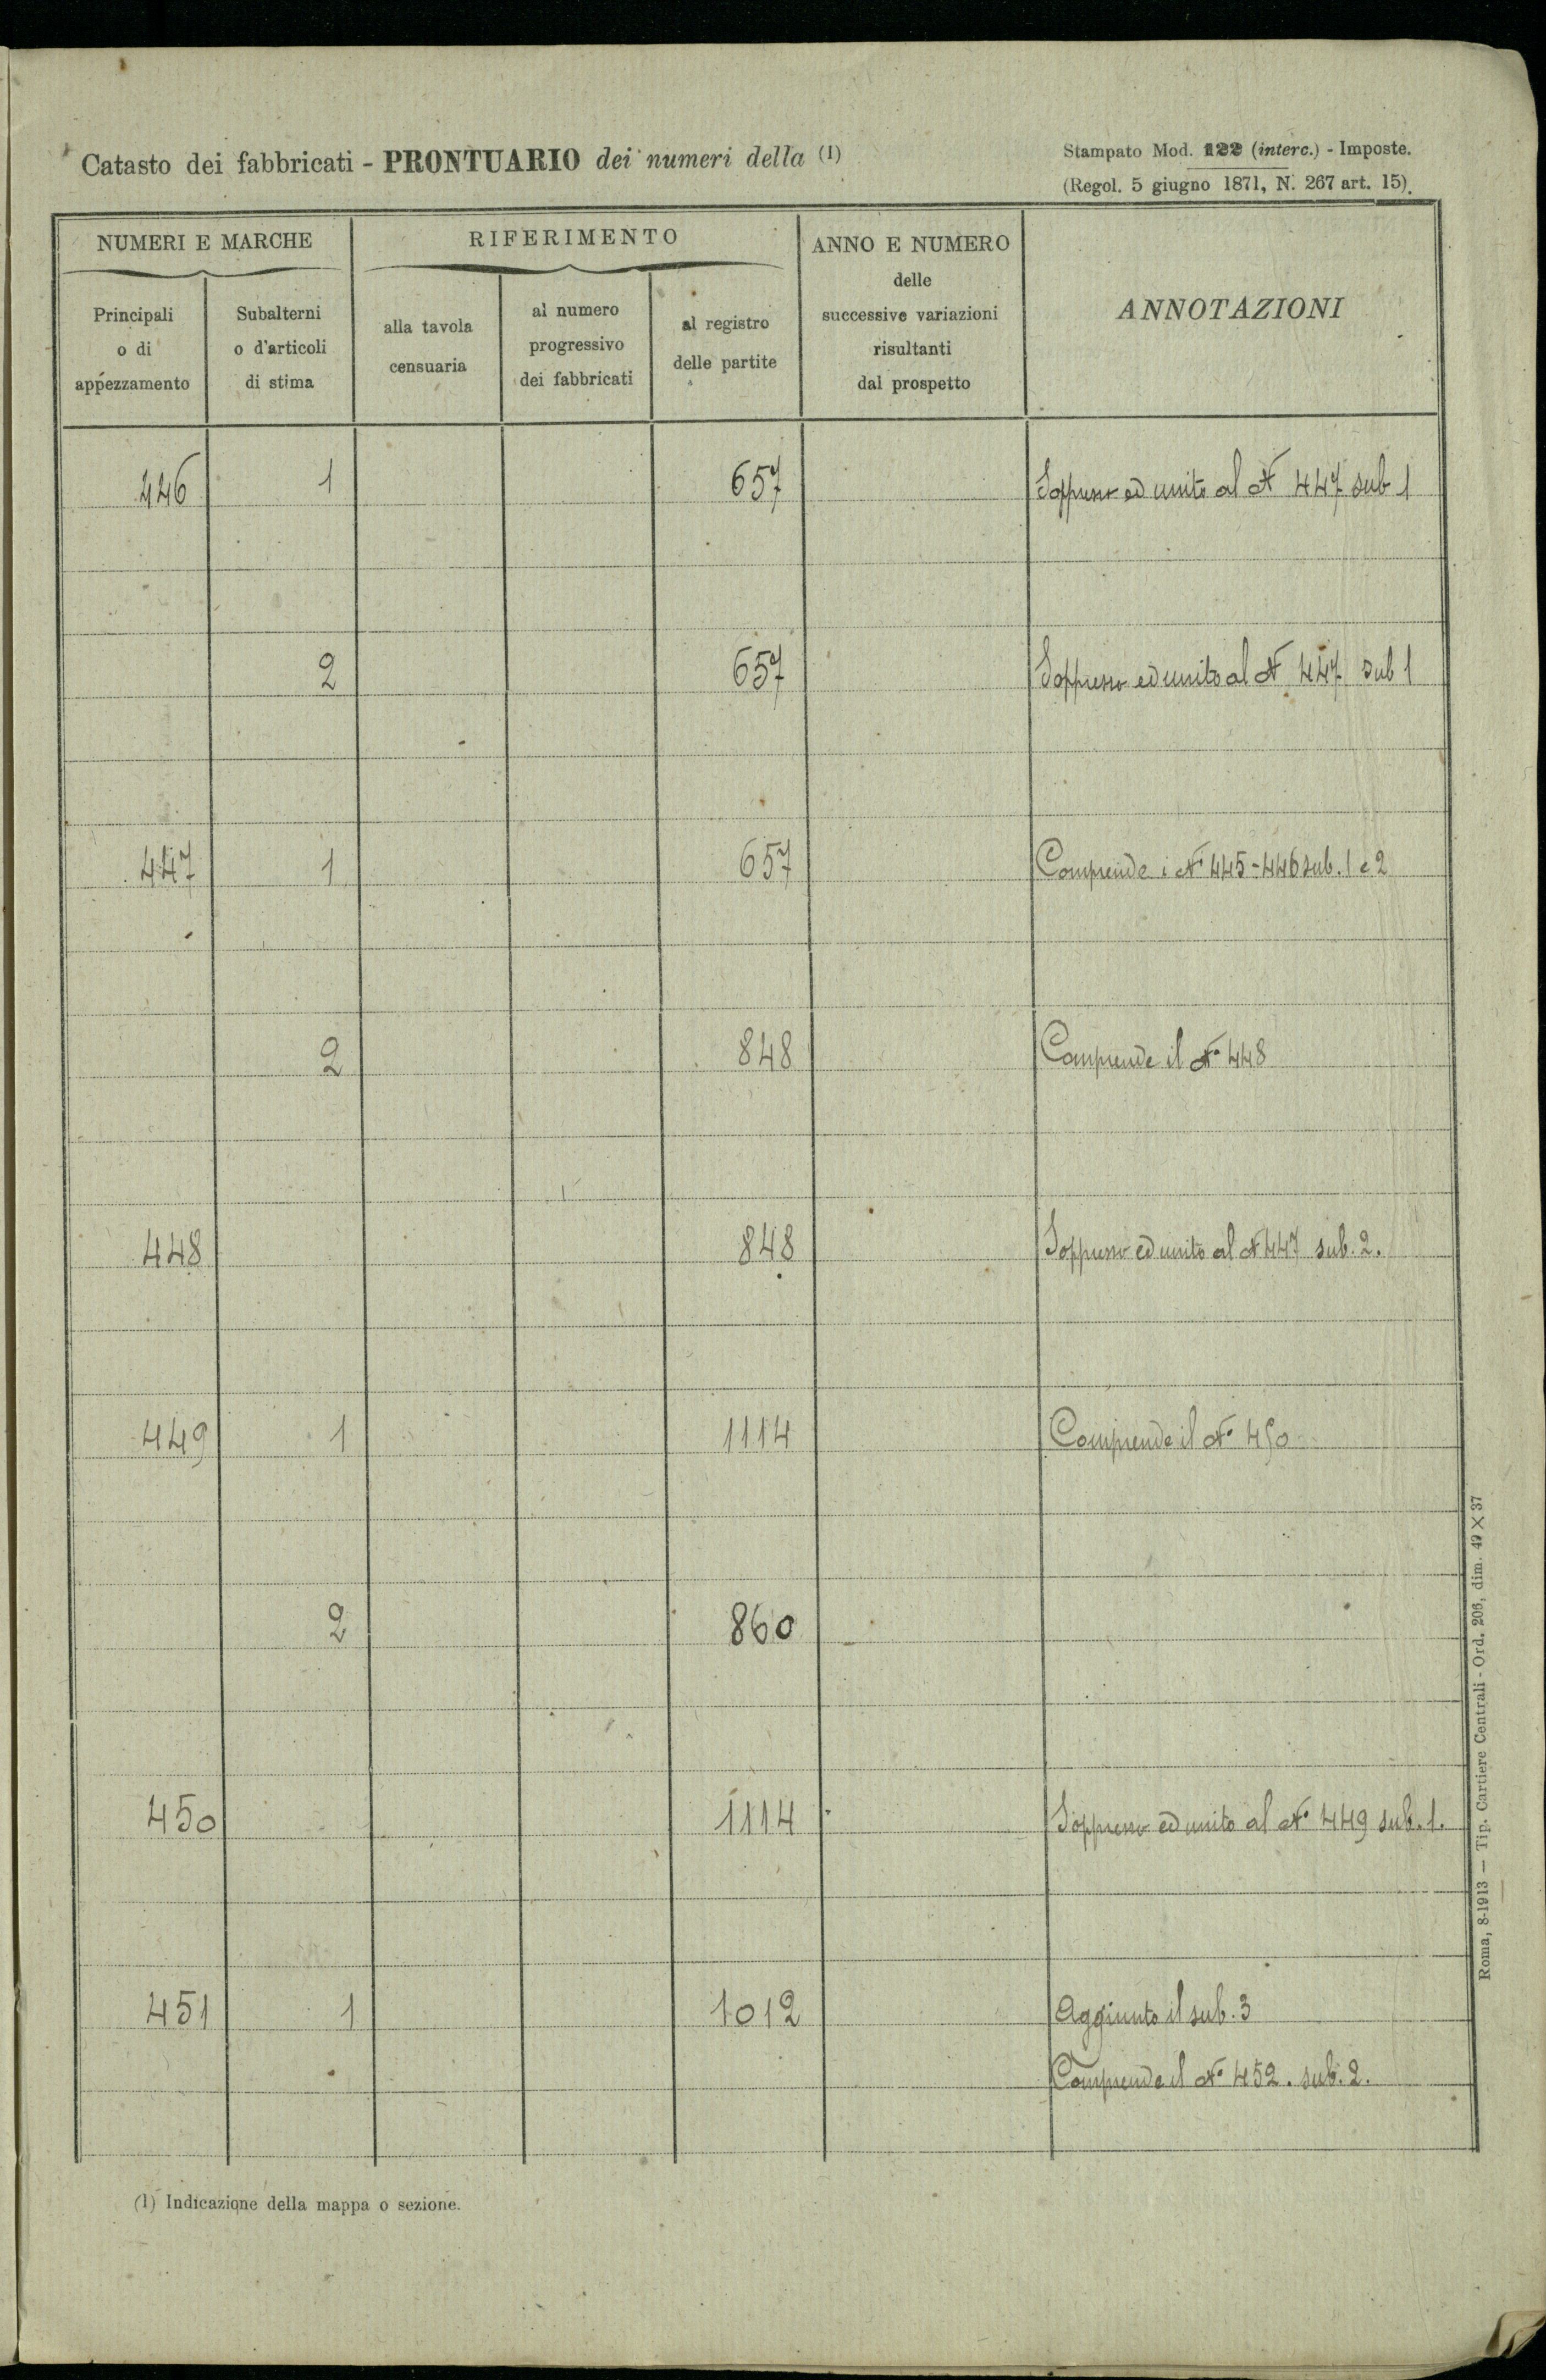 Catasto dei fabbricati - PRONTUARIO dei numeri della (1)
Stampato Mod. 122 (interc.) - Imposte.
(Regol. 5 giugno 1871, N. 267 art. 15).
NUMERI E MARCHE
RIFERIMENTO
ANNO E NUMERO
delle
successive variazioni
risultanti
dal prospetto
ANNOTAZIONI
Principali
o di
appezzamento
Subalterni
o d'articoli
di stima
alla tavola
censuaria
al numero
progressivo
dei fabbricati
al registro
delle partite
446 1 657 Soppresso ed unito al N 447 sub 1
2 657 Soppresso ed unito al N 447 sub 1
447 1 657 Comprende i Ni 445-446 sub. 1 e 2
2 848 Comprende il N° 448
448 848 Soppresso ed unito al N 447 sub. 2.
449 1 1114 Comprende il N° 450
2 860
450 1114 Soppresso ed unito al N° 449 sub. 1.
451 1 1012 Aggiunto il sub. 3
Comprende il N° 452. sub. 2.
(1) Indicazione della mappa o sezione.
Roma, 8-1913 — Tip. Cartiere Centrali - Ord. 206, dim. 49 X 37